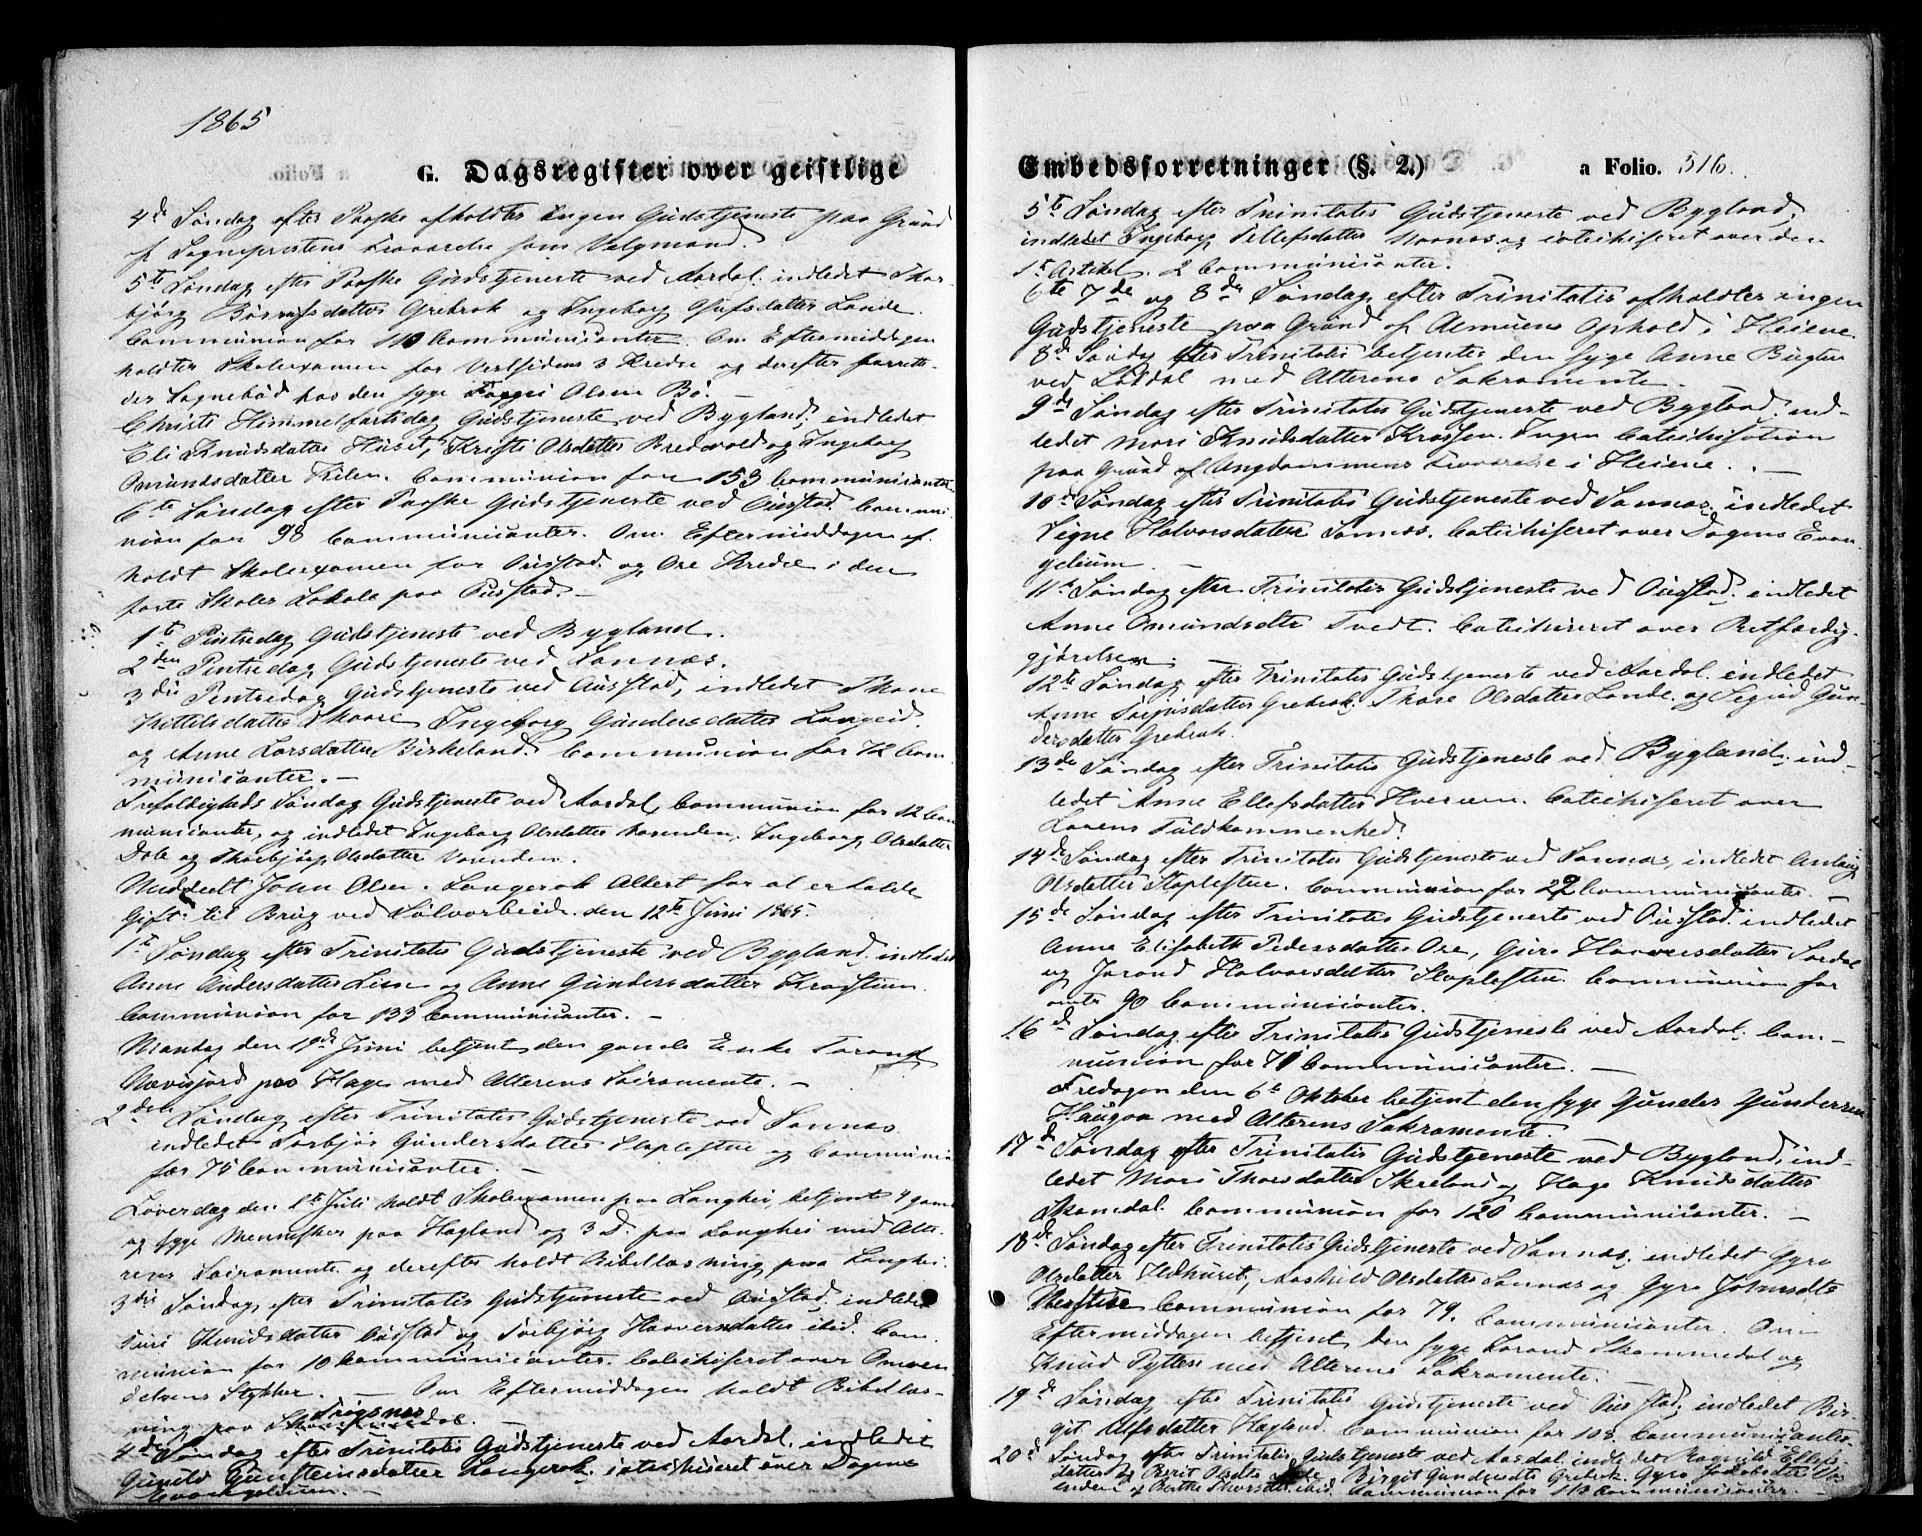 1865
G. Dagsregister over geistlige
4de Søndag efter Paaske afholdtes ingen Gudstjeneste paa Grund
af Sognepræstens Fraværelse som Valgmand.
5te Søndag efter Paaske Gudstjeneste ved Aardal. indledet Thor-
bjørg Grebrok og Ingeborg Lande.
Communion for 110 Communicanter. Om Eftermiddagen
holdtes Skoleexamen for Vestsidens 3 Kredse og derefter forrette-
des Sognebud hos den syge Olsen Bø. -
Christi Himmelfartsdag Gudstjeneste ved Bygland, indledet
Eli Knudsdatter Huset, Kristi Olsdatter Bredvold og Ingeborg
Omundsdatter Kilen. Communion for 153 Communicanter
6te Søndag efter Paaske Gudstjeneste ved Austad. Commu-
nion for 98 Communicanter. Om Eftermiddagen af-
holdt Skoleexamen for Austad og Ose Kredse i den
faste Skoles Lokale paa Austad. -
1te Pintsedag Gudstjeneste ved Bygland.
2den Pintsedag Gudstjeneste ved Sannæs.
3die Pintsedag Gudstjeneste ved Austad, indledet Thone
Kittilsdatter Skaare, Ingeborg Gundersdatter Langeid.
og Anne Larsdatter Birkeland. Communion for 72 Com-
municanter. -
Trefoldigheds Søndag Gudstjeneste ved Aardal, Communion for 12 Com-
municanter, og indledet Ingeborg Olsdatter Ingeborg Olsdatter
Dale og Thorbjørg Olsdatter
Meddeelt John Olsen Langerak Attest for at erholde
Gift til Brug ved den 12te Juni 1865.
1te Søndag efter Trinitatis Gudstjeneste ved Bygland, indledet
Anne Andersdatter og Anne Gundersdatter
Communion for 133 Communicanter. -
Mandag den 19de Juni betjent den gamle Enke Torand
paa Hage med Alterens Sacramente. -
2den Søndag efter Trinitatis Gudstjeneste ved Sannæs
indledet Torbjør Gundersdatter Staplestue og Communion
for 75 Communicanter. -
Løverdag den 1te Juli holdt Skoleexamen paa Langhei, betjente 4 gamle
og syge Mennesker paa Hagland og 3 D. paa Langhei med Alte-
rens Sacramente og derefter holdt Bibellæsning paa Langhei.
3die Søndag efter Trinitatis Gudstjeneste ved Austad. indledet
Knudsdatter Austad og Torbjørg Haavorsdatter ibid. Com-
munion for 10 Communicanter. Catechiseret over Omven-
delsens Stykker. - Om Eftermiddagen holdt Bibellæs-
ning paa
4de Søndag efter Trinitatis Gudstjeneste ved Aardal. indledet
Gunild Gunsteinsdatter Langerak, catechiseret over Dagens
Evangelium. -
Embedsforretninger (§. 2.)
a Folio. 516.
5te Søndag efter Trinitatis Gudstjeneste ved Bygland,
indledet Ingeborg Tellefsdatter og catechiseret over den
1te Artikel. 2 Communicanter.
6te 7de og 8de Søndag efter Trinitatis afholdtes ingen
Gudstjeneste paa Grund af Almuens Ophold i Heiene.
8de Søndag efter Trinitatis betjentes den syge Anne
ved med Alterens Sakramente.
9de Søndag efter Trinitatis Gudstjeneste ved Bygland, ind-
ledet Mari Knudsdatter Ingen Catechisation
paa Grund af Ungdommens Fraværelse i Heiene. -
10de Søndag efter Trinitatis Gudstjeneste ved Sannæs. indledet
Signe Halvorsdatter Sannæs. Catechiseret over Dagens Evan-
gelium. -
11te Søndag efter Trinitatis Gudstjeneste ved Austad. indledet
Anne Omundsdtr Tvedt. Catechiseret over Retfærdig-
gjørelsen. -
12te Søndag efter Trinitatis Gudstjeneste ved Aardal. indledet
Anne Grebrok, Thore Olsdatter Lande og Sigrid Gun-
dersdatter Grebrok.
13de Søndag efter Trinitatis Gudstjeneste ved Bygland. ind-
ledet Anne Ellefsdatter Catechiseret over
Lovens Fuldkommenhed.
14de Søndag efter Trinitatis Gudstjeneste ved Sannæs, indledet Anlaug
Olsdatter Staplestue. Communion for 22 Communicanter. -
15de Søndag efter Trinitatis Gudstjeneste ved Austad. indledet
Anne Elisabeth Pedersdatter Ose, Guro Haavorsdatter
og Jorand Halvorsdatter Staplestue. Communion for
90 Communicanter.
16de Søndag efter Trinitatis Gudstjeneste ved Aardal. Com-
munion for 71 Communicanter. -
Fredagen den 6te Oktober betjent den syge Gunder Gundersen
Haugaa med Alterens Sakramente
17de Søndag efter Trinitatis Gudstjeneste ved Bygland, ind-
ledet Mari Thorsdatter Skreland og Hage Knudsdatter
Skamdal. Communion for 120 Communicanter. -
18de Søndag efter Trinitatis Gudstjeneste ved Sannæs, indledet Gyro
Olsdatter Aashild Olsdatter Sannæs og Gyro
Communion for 79. Communicanter. Om
Eftermiddagen betjent den syge Torand Skammedal og
Knud med Alterens Sakramente.
19de Søndag efter Trinitatis Gudstjeneste ved Austad, indledet Bir-
git Alfsdatter Hagland. Communion for 108 Communicanter
20de Søndag efter Trinitatis Gudstjeneste ved Aardal. indledet Ragnild Ellefs-
datter og Berit Olsdtr Birgit Gundersdtr Grebrok, Gyro Jakobsdatter
og Berthe Thorsdtr ibid. Communion for 113 Communicanter. -